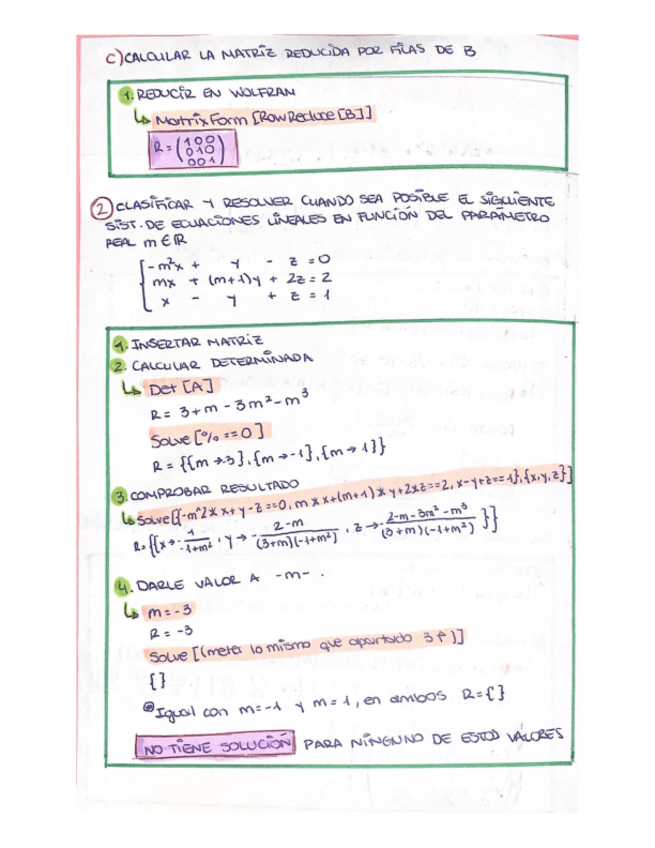 C) CALCULAR LA MATRIZ REDUCIDA POR FILAS DE B
1. REDUCIR EN WOLFRAN
↳ MatrixForm [RowReduce [B]]
R = (1 0 0
0 1 0
0 0 1)
2 CLASIFICAR Y RESOLVER CUANDO SEA POSIBLE EL SIGUIENTE
SIST. DE ECUACIONES LINEALES EN FUNCIÓN DEL PARÁMETRO
REAL m ∈ ℝ
-m²x + y - z = 0
mx + (m+1)y + 2z = 2
x - y + z = 1
1. INSERTAR MATRIZ
2. CALCULAR DETERMINADA
↳ Det [A]
R = 3 + m - 3m² - m³
Solve [% == 0]
R = {{m → 3}, {m → -1}, {m → 1}}
3. COMPROBAR RESULTADO
↳ Solve [{-m^2 * x + y - z == 0, m * x + (m+1) * y + 2 * z == 2, x - y + z == 1}, {x, y, z}]
R = {{x → - 1/(-1+m²), y → - (2-m)/((3+m)(-1+m²)), z → - (2-m-3m²-m³)/((3+m)(-1+m²))}}
4. DARLE VALOR A -m- .
↳ m = -3
R = -3
Solve [(meter lo mismo que apartado 3 ↑)]
{}
Igual con m=-1 y m=1, en ambos R={}
NO TIENE SOLUCIÓN PARA NINGUNO DE ESTOS VALORES